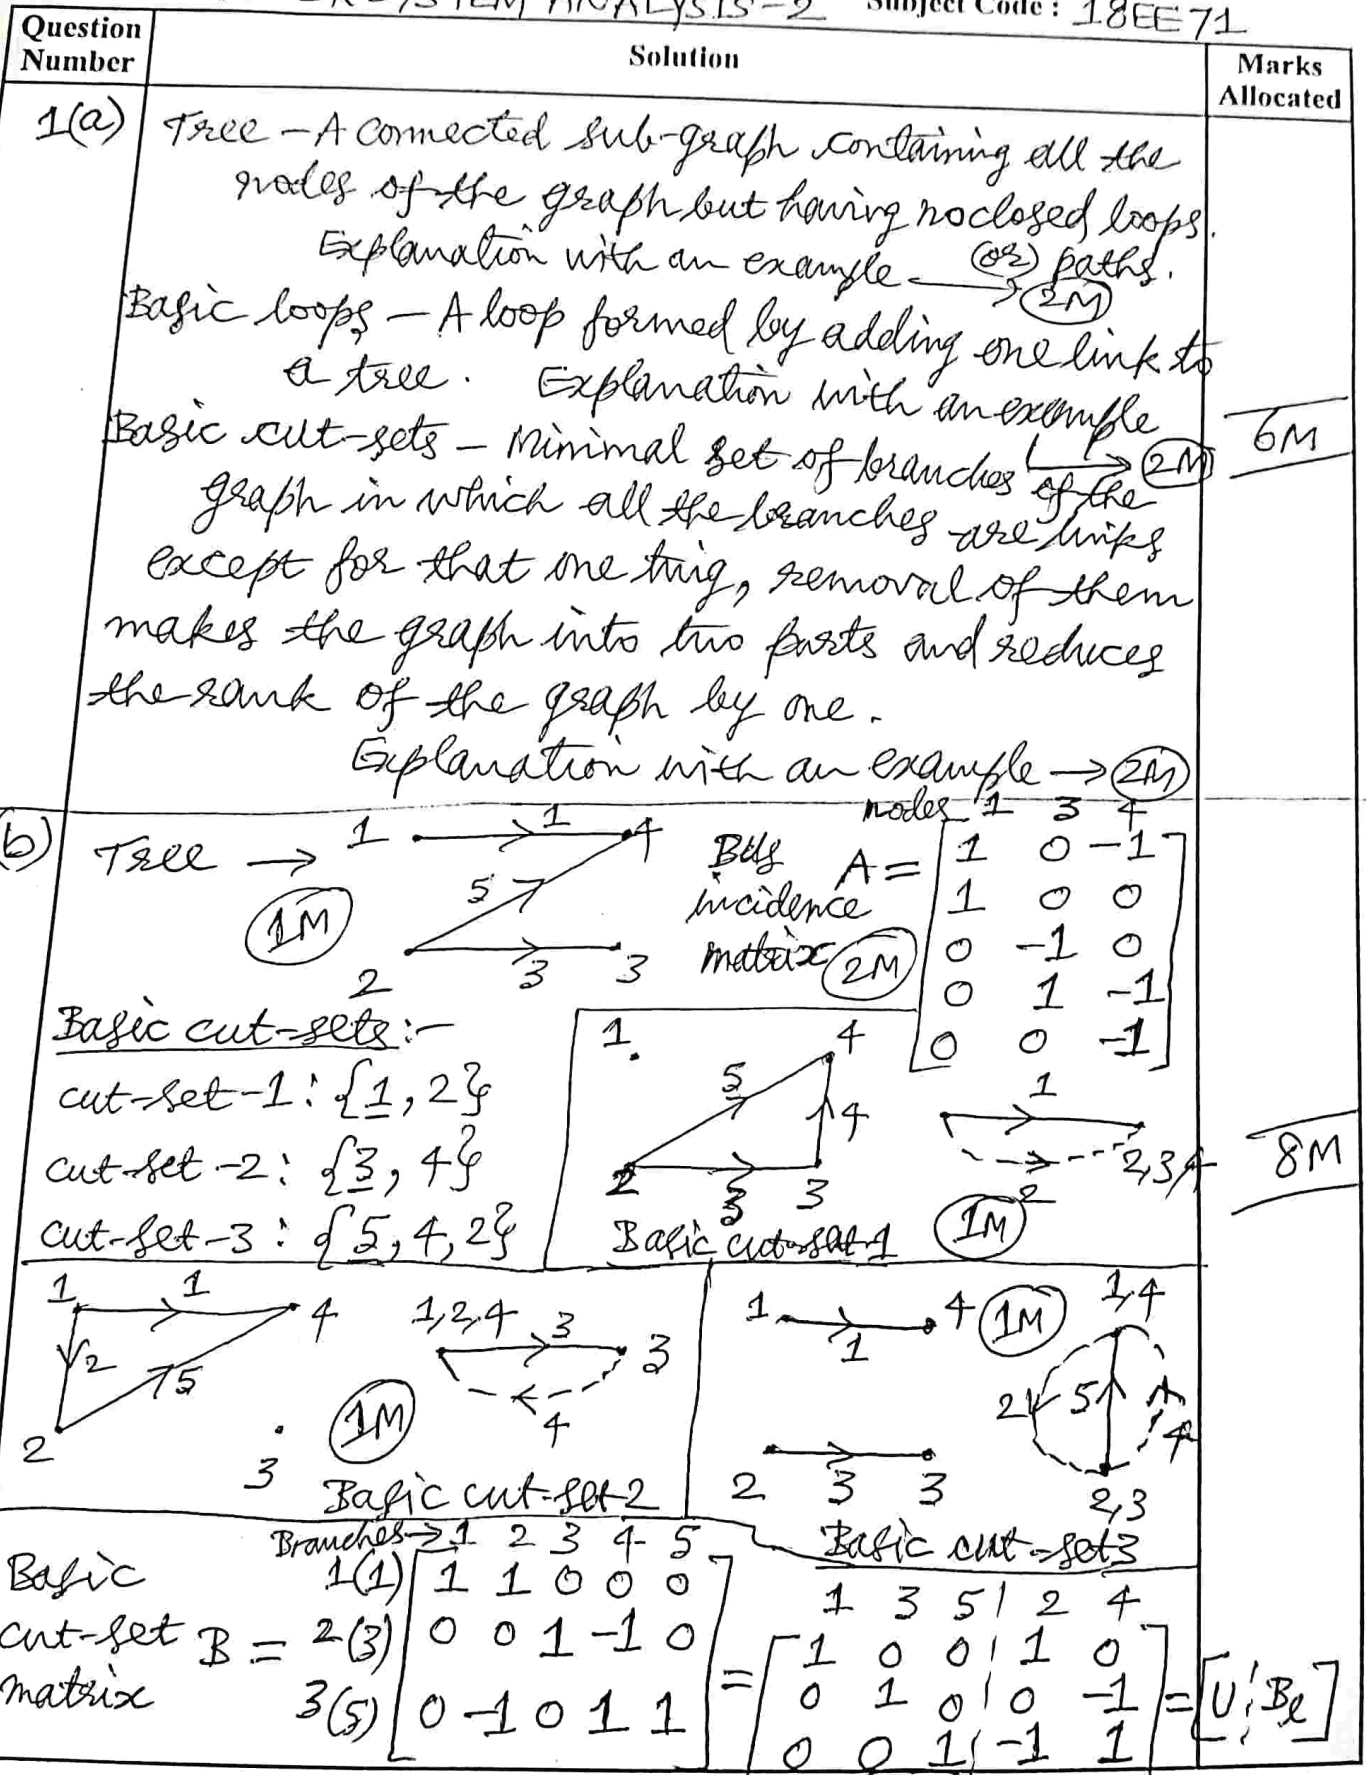 SYSTEM ANALYSIS-2 Subject Code : 18EE71
Question Number
Solution
Marks Allocated
1(a)
Tree - A connected sub-graph containing all the
nodes of the graph but having no closed loops.
(or) paths.
Explanation with an example → 2M
Basic loops - A loop formed by adding one link to
a tree. Explanation with an example
→ 2M
6M
Basic cut-sets - Minimal set of branches of the
graph in which all the branches are links
except for that one twig, removal of them
makes the graph into two parts and reduces
the rank of the graph by one.
Explanation with an example → 2M
(b)
Tree →
1M
1 1 4
5
2 3 3
Bus
incidence
matrix 2M
nodes 1 3 4
A =
1 0 -1
1 0 0
0 -1 0
0 1 -1
0 0 -1
Basic cut-sets :-
cut-set-1 : {1, 2}
cut-set-2 : {3, 4}
cut-set-3 : {5, 4, 2}
1 4
5
4
2 3 3
1
2,3,4
2
Basic cut-set-1 1M
8M
1 1 4
2 5
2
3
1,2,4 3 3
4
1M
Basic cut-set-2
1 4 1M
1
2 3 3
1,4
2 5 4
2,3
Basic cut-set 3
Basic
cut-set
matrix
B =
Branches → 1 2 3 4 5
1(1) 1 1 0 0 0
2(3) 0 0 1 -1 0
3(5) 0 -1 0 1 1
=
1 3 5 | 2 4
1 0 0 | 1 0
0 1 0 | 0 -1
0 0 1 | -1 1
= [U | Bl]